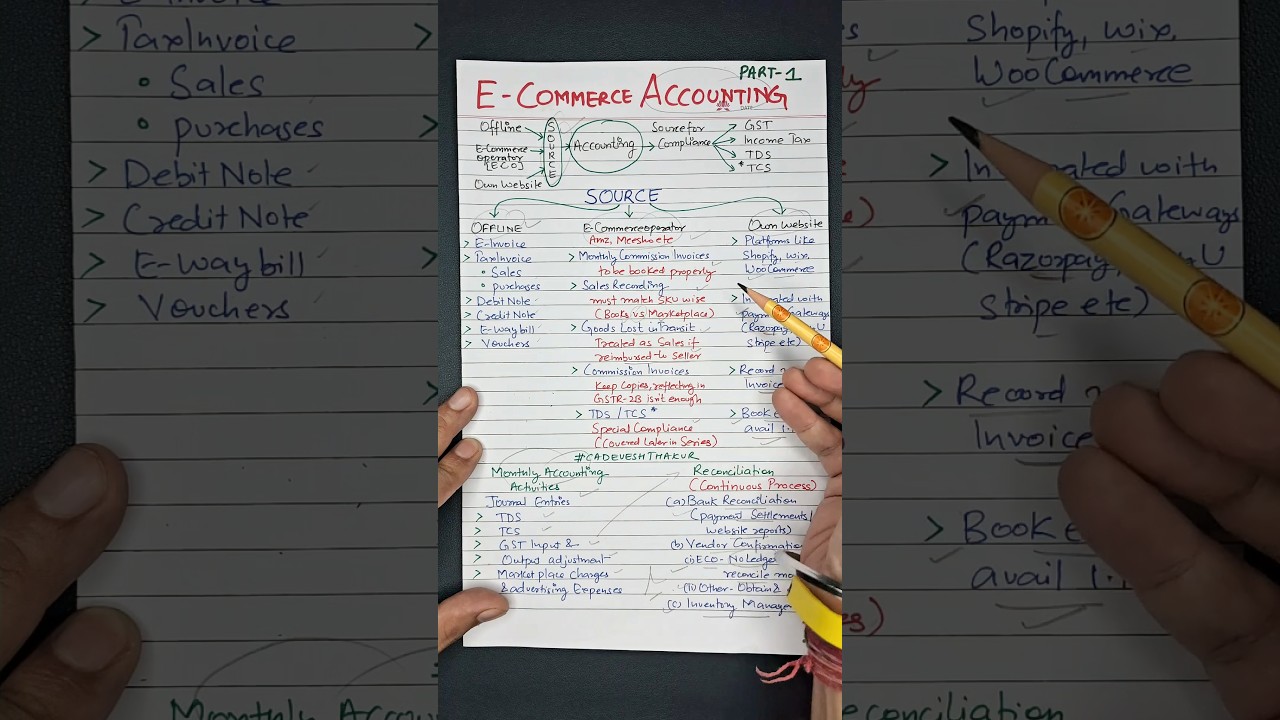 PART-1
E-COMMERCE ACCOUNTING
Offline
E-Commerce operator (ECO)
Own Website
SOURCE
Accounting
Source for Compliance
GST
Income Tax
TDS
* TCS
SOURCE
OFFLINE
> E-Invoice
> TaxInvoice
• Sales
• purchases
> Debit Note
> Credit Note
> E-way bill
> Vouchers
E-Commerce operator
Amz, Meesho etc
> Monthly Commission Invoices
to be booked properly
> Sales Recording
must match SKU wise
(Books vs Marketplace)
> Goods Lost in Transit
Treated as Sales if
reimbursed to seller
> Commission Invoices
Keep Copies, reflecting in
GSTR-2B isn't enough
> TDS / TCS *
Special Compliance
(Covered Later in Series)
Own Website
> Platforms like
Shopify, wix,
WooCommerce
> with
payment Gateways
(Razorpay,
Stripe etc)
> Record
Invoice
> Book
avail
#CADEVESHTHAKUR
Monthly Accounting
Activities
Journal Entries
> TDS
> TCS
> GST Input &
> Output adjustment
> Marketplace Charges
& advertising Expenses
Reconciliation
(Continuous Process)
(a) Bank Reconciliation
(payment Settlements/
website reports)
(b) Vendor Confirmation
(i) ECO - No Ledger
reconcile
(ii) Other - Obtain &
(c) Inventory
> TaxInvoice
• Sales
• purchases
> Debit Note
> Credit Note
> E-way bill
> Vouchers
Shopify, wix,
WooCommerce
> with
Gateways
(Razorpay,
Stripe etc)
> Record
Invoice
> Book
avail